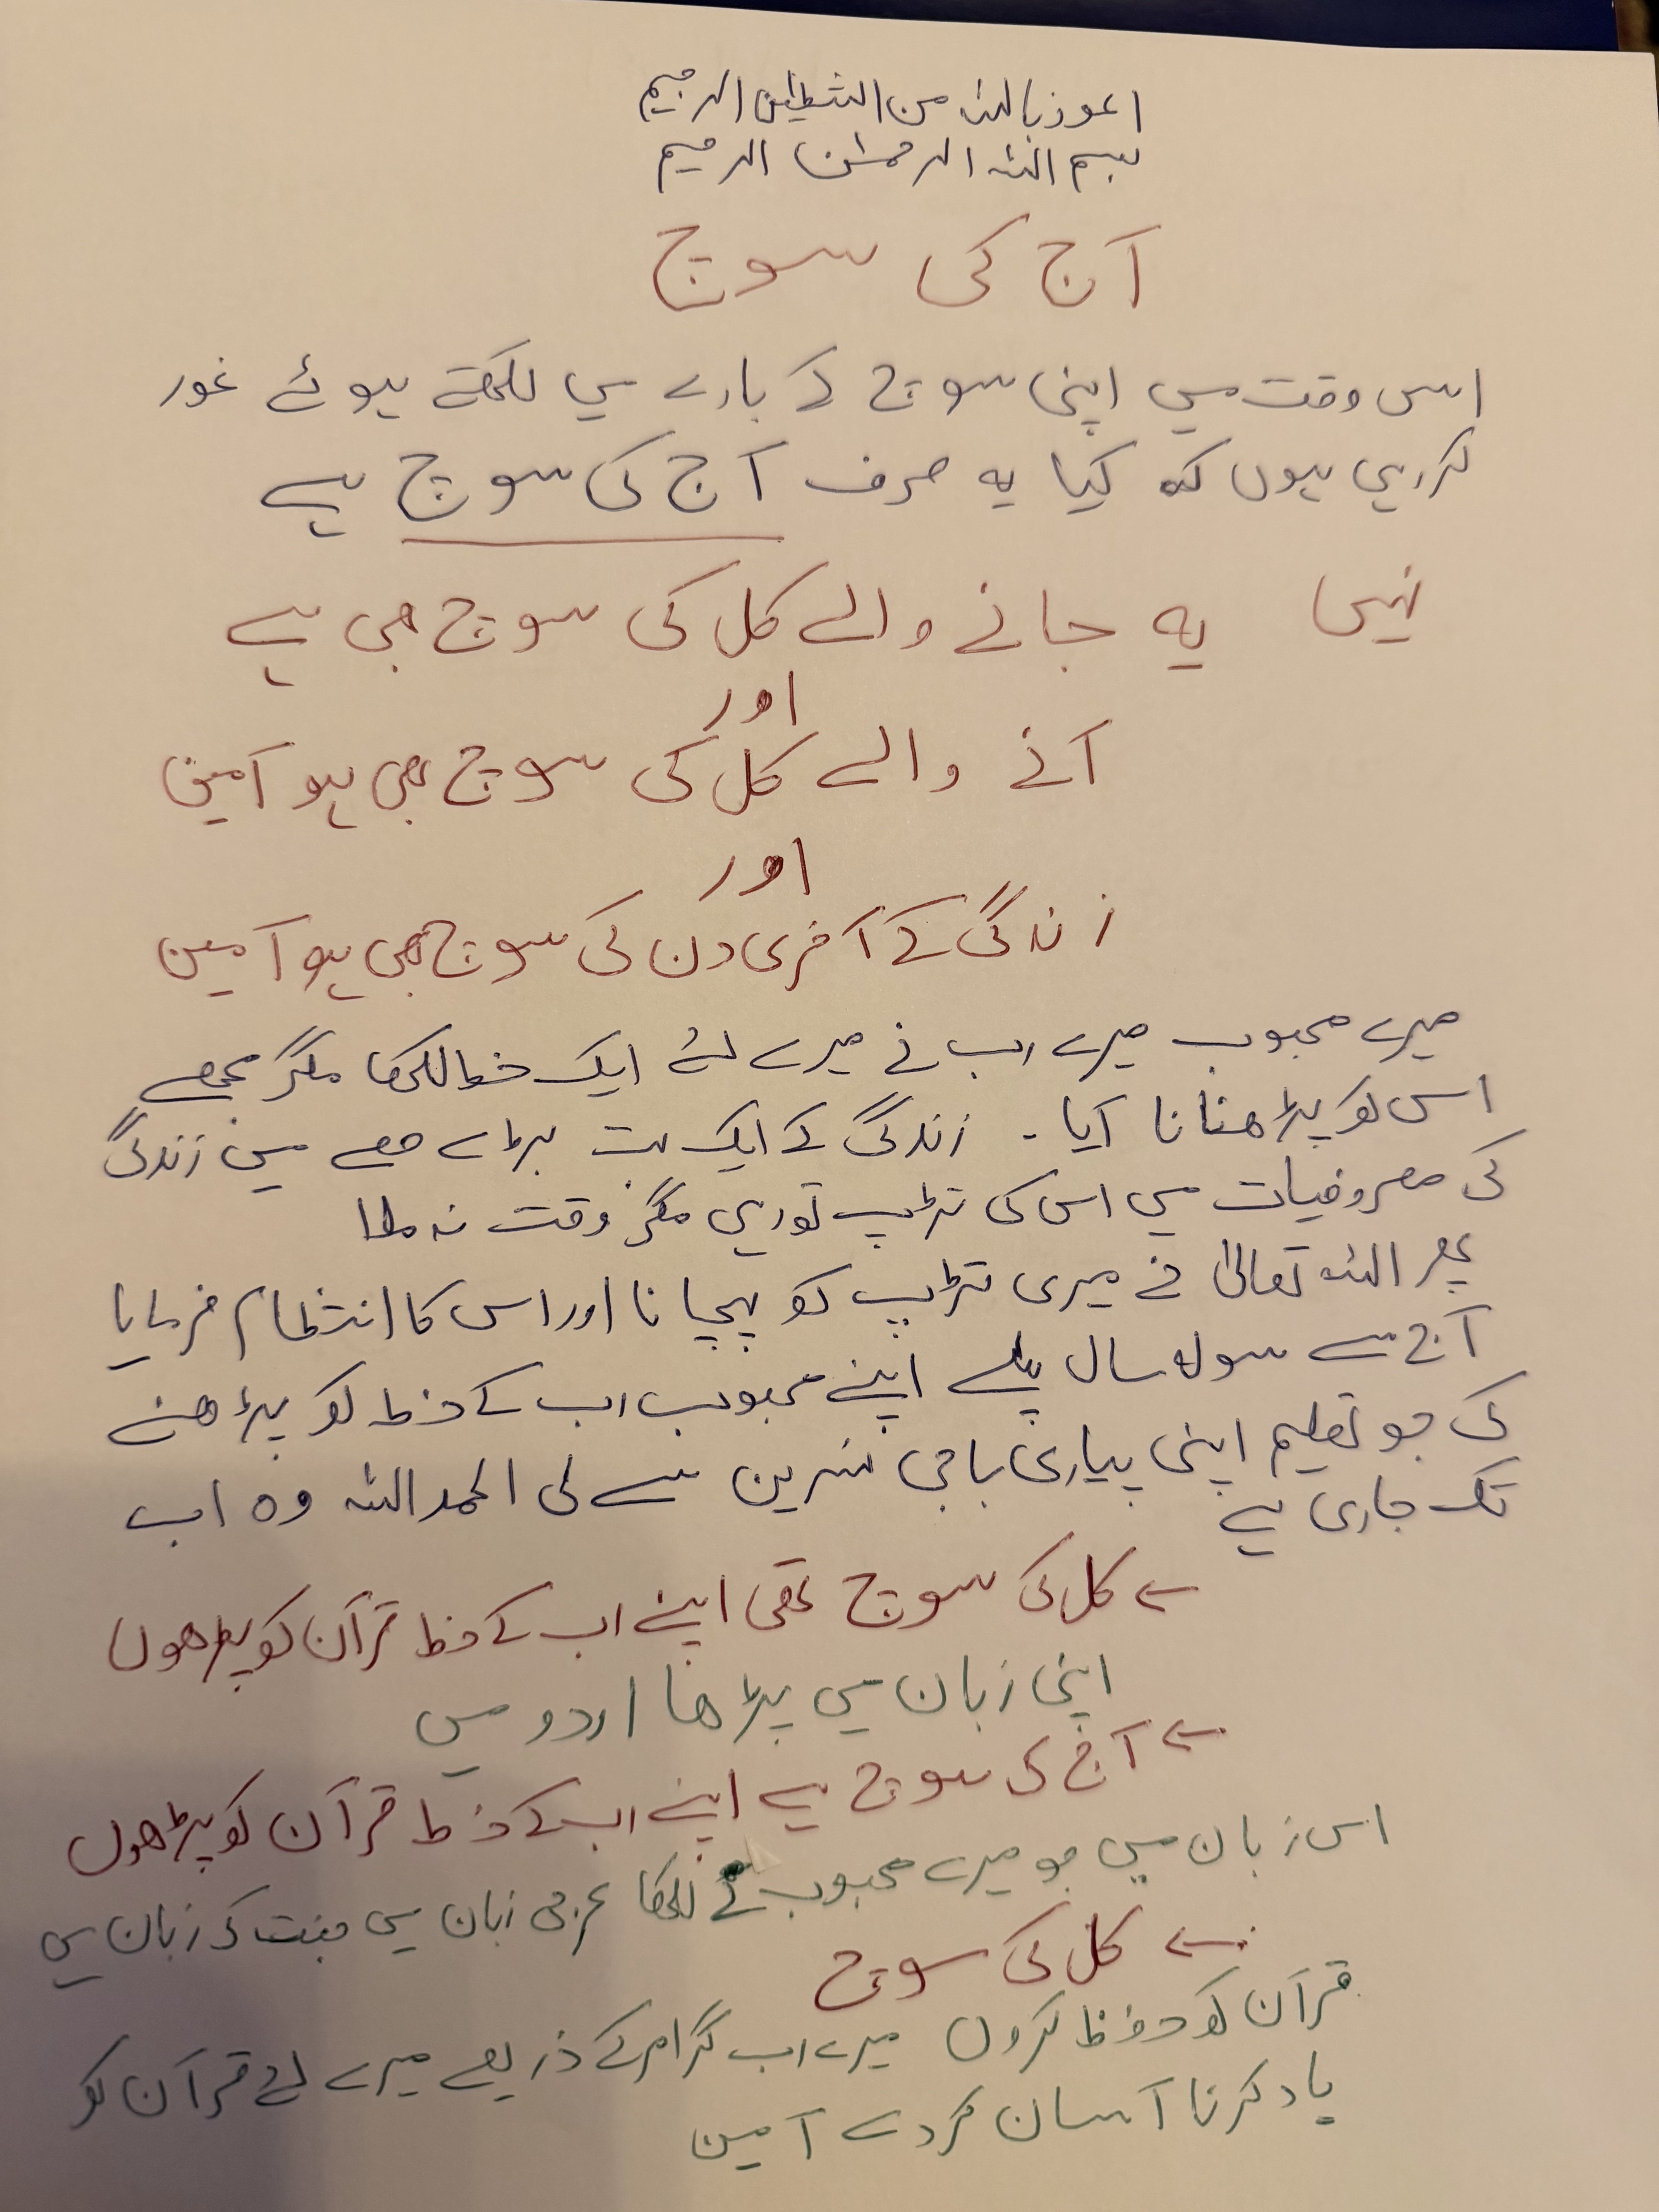 اعوذ بالله من الشیطٰن الرجیم
بسم الله الرحمٰن الرحیم
آج کی سوچ
اس وقت میں اپنی سوچ کے بارے میں لکھتے ہوئے غور
کررہی ہوں کہ کیا یہ صرف آج کی سوچ ہے
نہیں یہ جانے والے کل کی سوچ بھی ہے
اور
آنے والے کل کی سوچ بھی ہو آمین
اور
زندگی کے آخری دن کی سوچ بھی ہو آمین
میرے محبوب میرے رب نے میرے لئے ایک خط لکھا مگر مجھے
اس کو پڑھنا نا آیا ۔ زندگی کے ایک بہت بڑے حصے میں زندگی
کی مصروفیات میں اس کی تڑپ تو رہی مگر وقت نہ ملا
پھر الله تعالیٰ نے میری تڑپ کو پہچانا اور اس کا انتظام فرمایا
آج سے سولہ سال پہلے اپنے محبوب رب کے خط کو پڑھنے
کی جو تعلیم اپنی پیاری باجی نسرین سے لی الحمد الله وہ اب
تک جاری ہے
← کل کی سوچ تھی اپنے رب کے خط قرآن کو پڑھوں
اپنی زبان میں پڑھا اردو میں
← آج کی سوچ ہے اپنے رب کے خط قرآن کو پڑھوں
اس زبان میں جو میرے محبوب نے لکھا عربی زبان میں جنت کی زبان میں
← کل کی سوچ
قرآن کو حفظ کروں میرے رب گرامر کے ذریعے میرے لئے قرآن کو
یاد کرنا آسان کردے آمین